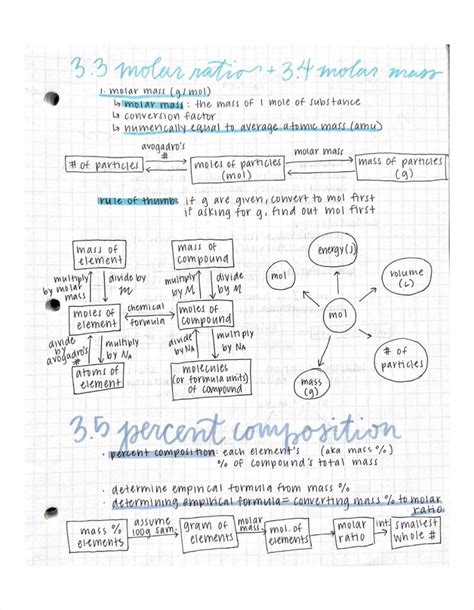 3.3 molar ratios + 3.4 molar mass
1. molar mass (g/mol)
↳ molar mass: the mass of 1 mole of substance
↳ conversion factor
↳ numerically equal to average atomic mass (amu)
avogadro's
#
molar mass
# of particles
moles of particles
(mol)
mass of particles
(g)
rule of thumb: if g are given, convert to mol first
if asking for g, find out mol first
mass of
element
mass of
compound
multiply
by molar
mass
divide
by
M
multiply
by M
divide
by M
moles of
element
chemical
formula
moles of
compound
divide
by
avogadro's
#
multiply
by NA
divide
by NA
multiply
by NA
atoms of
element
molecules
(or formula units)
of compound
energy (J)
mol
volume
(L)
mol
# of
particles
mass
(g)
3.5 percent composition
· percent composition: each element's (aka mass %)
% of compound's total mass
· determine empirical formula from mass %
· determining empirical formula = converting mass % to molar
ratio
mass %
elements
assume
100g sam.
gram of
elements
molar
mass
mol. of
elements
molar
ratio
int.
smallest
whole #